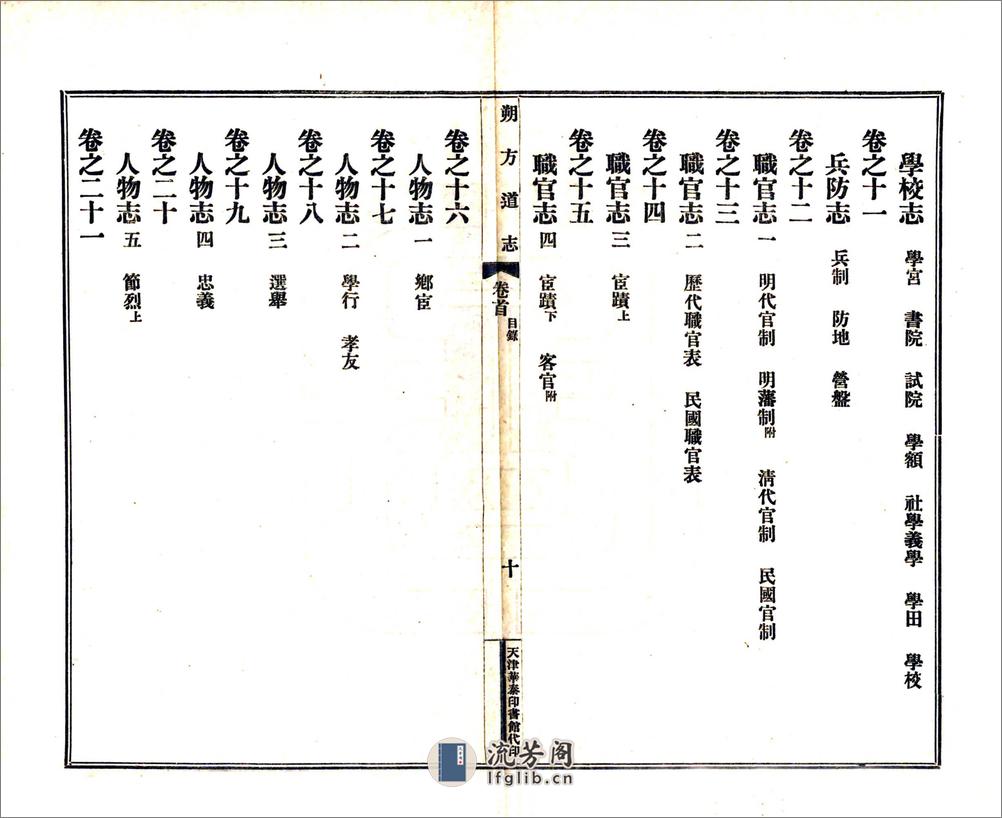 學校志 學宮 書院 試院 學額 社學義學 學田 學校
卷之十一
兵防志 兵制 防地 營盤
卷之十二
職官志一 明代官制 明藩制附 淸代官制 民國官制
卷之十三
職官志二 歷代職官表 民國職官表
卷之十四
職官志三 宦蹟上
卷之十五
職官志四 宦蹟下 客官附
朔方道志 卷首 目錄 十 天津華泰印書館代印
卷之十六
人物志一 鄉宦
卷之十七
人物志二 學行 孝友
卷之十八
人物志三 選舉
卷之十九
人物志四 忠義
卷之二十
人物志五 節烈上
卷之二十一
流芳阁
lfglib.cn